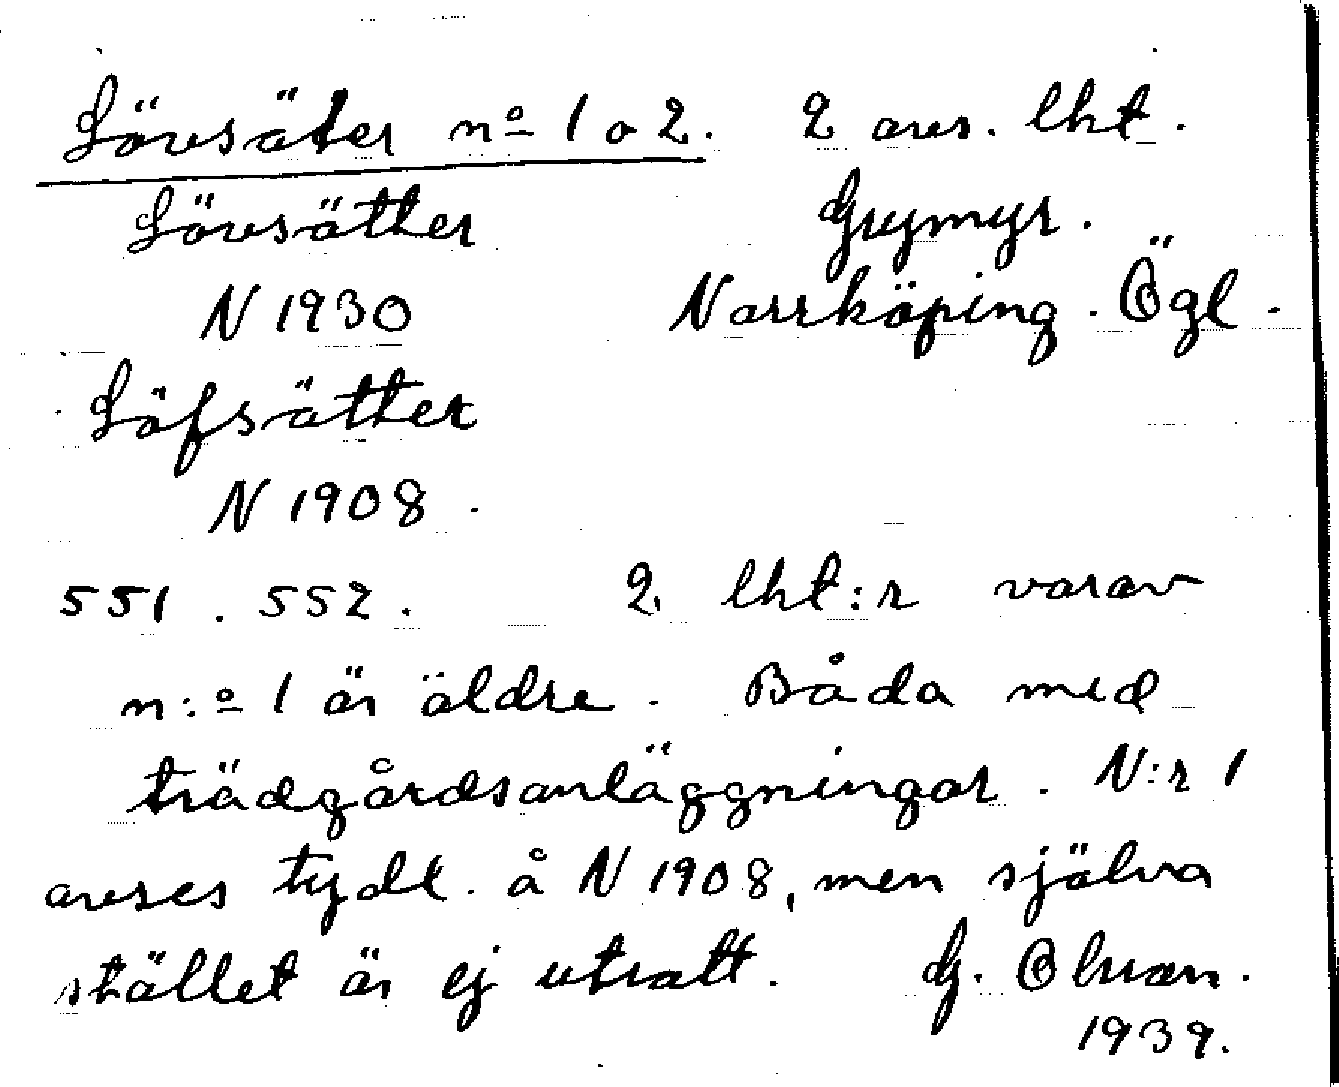 Lövsäter nº 1 o 2. 2 avs. lht.
Lövsätter Grymyr.
N 1930 Norrköping. Ögl.
Löfsätter
N 1908.
551. 552. 2 lht:r varav
n:º 1 är äldre. Båda med
trädgårdsanläggningar. N:r 1
avses tydl. å N 1908, men själva
stället är ej utsatt. G. Olsson.
1939.